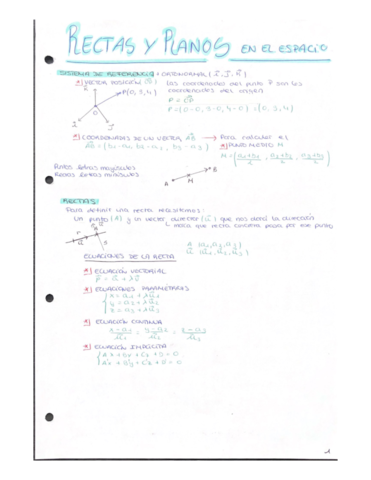 RECTAS Y PLANOS EN EL ESPACIO
SISTEMA DE REFERENCIA: ORTONORMAL (
VECTOR POSICIÓN → Las coordenadas del punto P son las
coordenadas del
P(0,3,4)
P = (0-0, 3-0, 4-0) = (0,3,4)
COORDENADAS DE UN VECTOR AB → Para calcular el
PUNTO MEDIO M
AB = (b₁-a₁, b₂-a₂, b₃-a₃)
Puntos letras mayúsculas
Rectas letras minúsculas
A M B
RECTAS
Para definir una recta necesitamos:
Un punto (A) y un vector director (u) que nos dará la dirección
A (a₁,a₂,a₃)
u (u₁,u₂,u₃)
ECUACIONES DE LA RECTA
ECUACIÓN VECTORIAL
ECUACIONES PARAMÉTRICAS
x = a₁ + λu₁
y = a₂ + λu₂
z = a₃ + λu₃
ECUACIÓN CONTINUA
ECUACIÓN IMPLÍCITA
Ax + By + Cz + D = 0
A'x + B'y + C'z + D' = 0
1